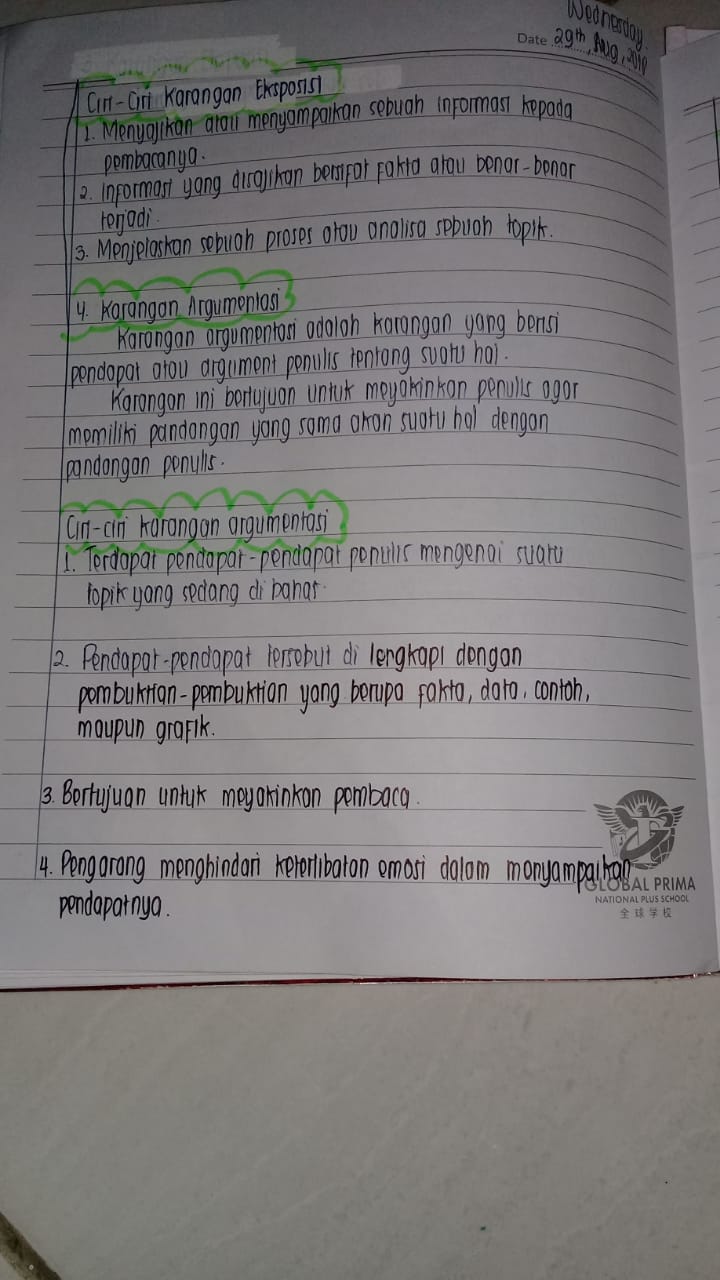 Wednesday.
Date 29th, Aug, 2018
Ciri-Ciri Karangan Eksposisi
1. Menyajikan atau menyampaikan sebuah informasi kepada
pembacanya.
2. Informasi yang disajikan bersifat fakta atau benar-benar
terjadi.
3. Menjelaskan sebuah proses atau analisa sebuah topik.
4. Karangan Argumentasi
Karangan argumentasi adalah karangan yang berisi
pendapat atau argument penulis tentang suatu hal.
Karangan ini bertujuan untuk meyakinkan penulis agar
memiliki pandangan yang sama akan suatu hal dengan
pandangan penulis.
Ciri-ciri karangan argumentasi
1. Terdapat pendapat-pendapat penulis mengenai suatu
topik yang sedang di bahas.
2. Pendapat-pendapat tersebut di lengkapi dengan
pembuktian-pembuktian yang berupa fakta, data, contoh,
maupun grafik.
3. Bertujuan untuk meyakinkan pembaca.
4. Pengarang menghindari keterlibatan emosi dalam menyampaikan
pendapatnya.
GLOBAL PRIMA
NATIONAL PLUS SCHOOL
全球学校